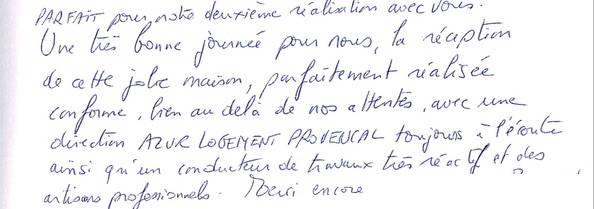 PARFAIT pour notre deuxième réalisation avec vous.
Une très bonne journée pour nous, la réception
de cette jolie maison, parfaitement réalisée
conforme, bien au delà de nos attentes, avec une
direction AZUR LOGEMENT PROVENCAL toujours à l'écoute
ainsi qu'un conducteur de travaux très réactif et des
artisans professionnels. Merci encore